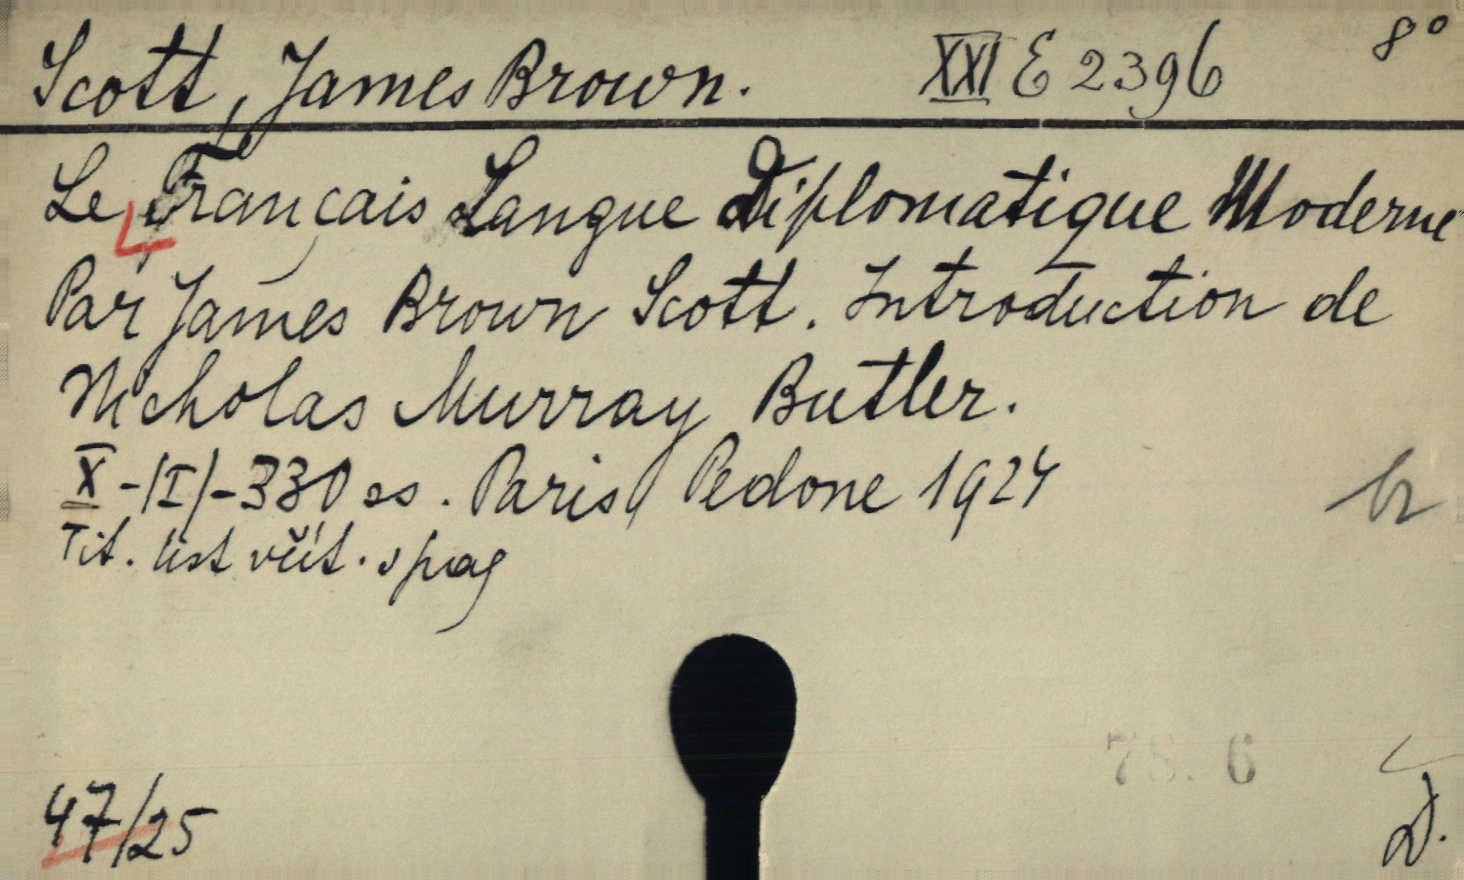 Scott, James Brown. XXI E 2396 8°
Le Français Langue Diplomatique Moderne
Par James Brown Scott. Introduction de
Nicholas Murray Butler.
X-/I/-330 ss. Paris Pedone 1924
Tit. list včít. s pag
78. 6
47/25
D.